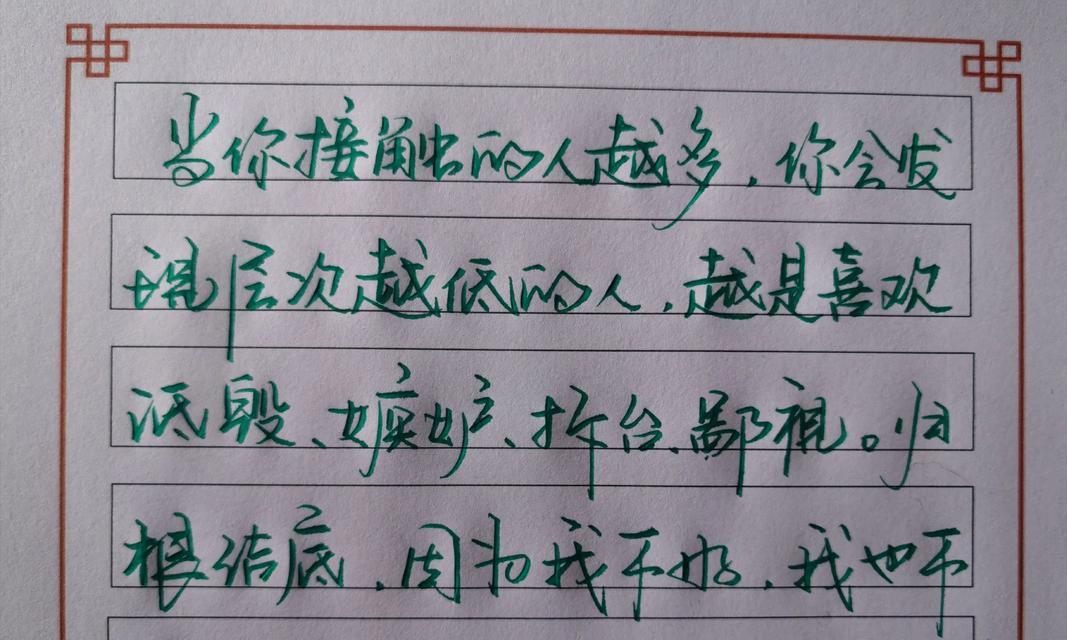 当你接触的人越多，你会发
现层次越低的人，越是喜欢
诋毁、嫉妒、拆台、鄙视。归
根结底，因为我不好，我也不